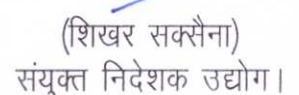 (शिखर सक्सैना)
संयुक्त निदेशक उद्योग।